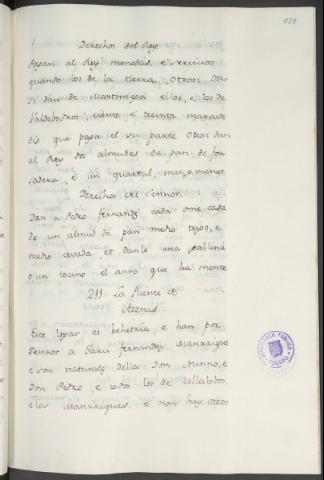 Derechos del Rey
Pagan al Rey monedas, e servicios
quando los de la tierra, Otrosi Otro
si dan de Martiniega ellos, e los de
Valdebostros, ciento e treinta marave
dis que paga el su parte Otrosi dan
al Rey dos almudes de pan de fon
sadera, e un quartal, mas, o menos.
Derechos del Sennor.
Dan a Pedro Fernandz cada ome casa
de un almud de pan medio trigo, e
medio cevada et danle una gallina
o un tocino el anno que ha monte
211 La Puente de
Arenas.
Este logar es behetria, e han por
Sennor a Garci Fernandez Manrrique
e son naturales della Don Nunno, e
Don Pedro e todos los de Villalobos,
e los Manrriques e non hay otros
BIBLIOTECA PUBLICA
TOLEDO